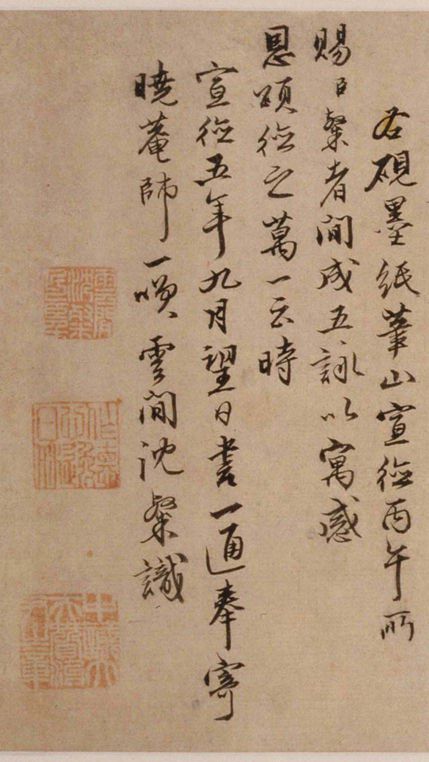 右硯墨紙筆山宣德丙午所
賜臣粲者間成五詠以寓感
恩頌德之萬一云時
宣德五年九月望日書一通奉寄
曉菴師一噱雲間沈粲識